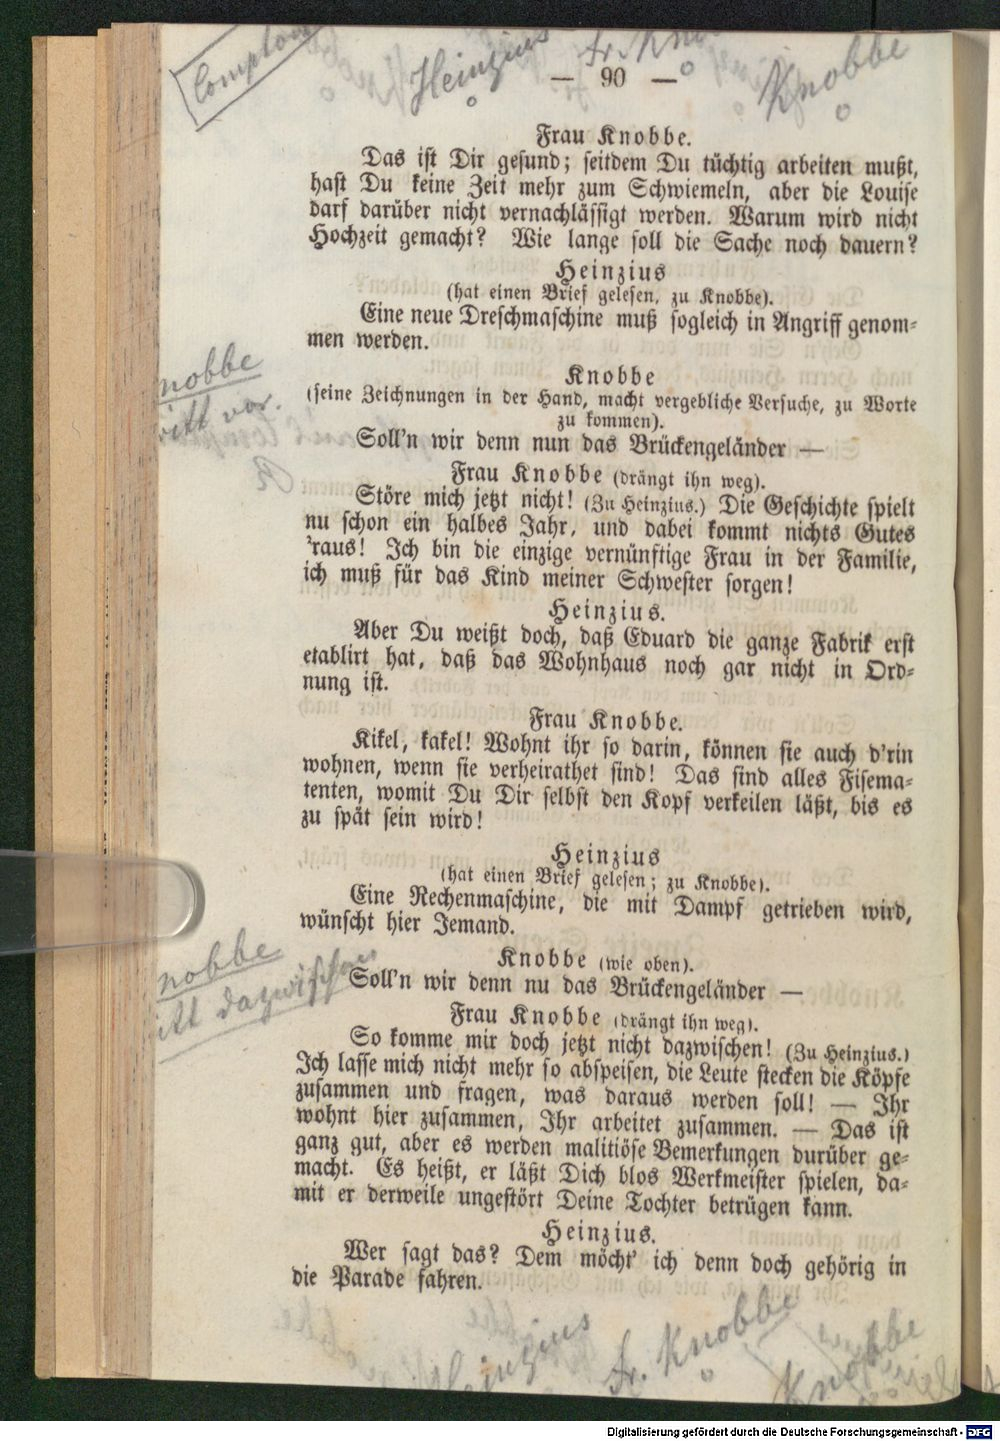 Comptoir
Heinzius Fr. Kno
Knobbe
— 90 —
Frau Knobbe.
Das ist Dir gesund; seitdem Du tüchtig arbeiten mußt,
hast Du keine Zeit mehr zum Schwiemeln, aber die Louise
darf darüber nicht vernachlässigt werden. Warum wird nicht
Hochzeit gemacht? Wie lange soll die Sache noch dauern?
Heinzius
(hat einen Brief gelesen, zu Knobbe).
Eine neue Dreschmaschine muß sogleich in Angriff genom-
men werden.
Knobbe
(seine Zeichnungen in der Hand, macht vergebliche Versuche, zu Worte
zu kommen).
Soll'n wir denn nun das Brückengeländer —
Frau Knobbe (drängt ihn weg).
Störe mich jetzt nicht! (Zu Heinzius.) Die Geschichte spielt
nu schon ein halbes Jahr, und dabei kommt nichts Gutes
'raus! Ich bin die einzige vernünftige Frau in der Familie,
ich muß für das Kind meiner Schwester sorgen!
Heinzius.
Aber Du weißt doch, daß Eduard die ganze Fabrik erst
etablirt hat, daß das Wohnhaus noch gar nicht in Ord-
nung ist.
Frau Knobbe.
Kikel, kakel! Wohnt ihr so darin, können sie auch d'rin
wohnen, wenn sie verheirathet sind! Das sind alles Fisema-
tenten, womit Du Dir selbst den Kopf verkeilen läßt, bis es
zu spät sein wird!
Heinzius
(hat einen Brief gelesen; zu Knobbe).
Eine Rechenmaschine, die mit Dampf getrieben wird,
wünscht hier Jemand.
Knobbe (wie oben).
Soll'n wir denn nu das Brückengeländer —
Frau Knobbe (drängt ihn weg).
So komme mir doch jetzt nicht dazwischen! (Zu Heinzius.)
Ich lasse mich nicht mehr so abspeisen, die Leute stecken die Köpfe
zusammen und fragen, was daraus werden soll! — Ihr
wohnt hier zusammen, Ihr arbeitet zusammen. — Das ist
ganz gut, aber es werden malitiöse Bemerkungen durüber ge-
macht. Es heißt, er läßt Dich blos Werkmeister spielen, da-
mit er derweile ungestört Deine Tochter betrügen kann.
Heinzius.
Wer sagt das? Dem möcht' ich denn doch gehörig in
die Parade fahren.
nobbe
ritt vor.
nobbe
itt dazwischen
Heinzius Fr. Knobbe
Knobbe
Digitalisierung gefördert durch die Deutsche Forschungsgemeinschaft - DFG